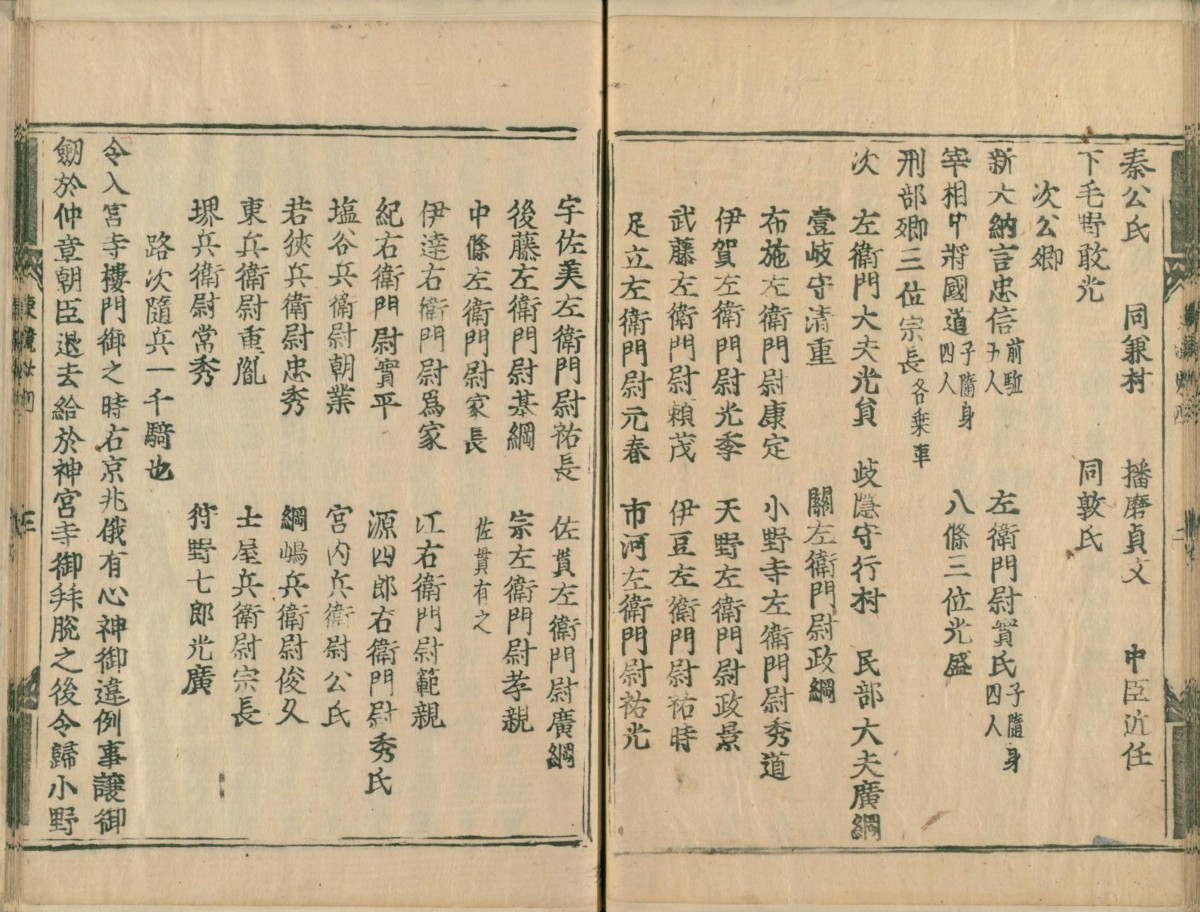 秦公氏　同兼村　播磨貞文　中臣近任
下毛野敢光　同敦氏
次公卿
新大納言忠信前駈五人　左衛門尉實氏子隨身四人
宰相中將國道子隨身四人　八條三位光盛
刑部卿三位宗長各乗車
次　左衛門大夫光貟　岐隱守行村　民部大夫廣綱
壹岐守清重　關左衛門尉政綱
布施左衛門尉康定　小野寺左衛門尉秀道
伊賀左衛門尉光季　天野左衛門尉政景
武藤左衛門尉頼茂　伊豆左衛門尉祐時
足立左衛門尉元春　市河左衛門尉祐光
宇佐美左衛門尉祐長　佐貫左衛門尉廣綱
後藤左衛門尉基綱　宗左衛門尉孝親
中條左衛門尉家長　佐貫有之
伊達右衛門尉爲家　江右衛門尉範親
紀右衛門尉實平　源四郎右衛門尉秀氏
塩谷兵衛尉朝業　宮内兵衛尉公氏
若狹兵衛尉忠秀　綱嶋兵衛尉俊久
東兵衛尉重胤　士屋兵衛尉宗長
堺兵衛尉常秀　狩野七郎光廣
路次隨兵一千騎也
令入宮寺樓門御之時右京兆俄有心神御違例事讓御
劔於仲章朝臣退去給於神宮寺御拜脫之後令歸小野